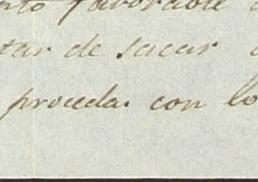 favorable
tar de sacar
proceda con lo